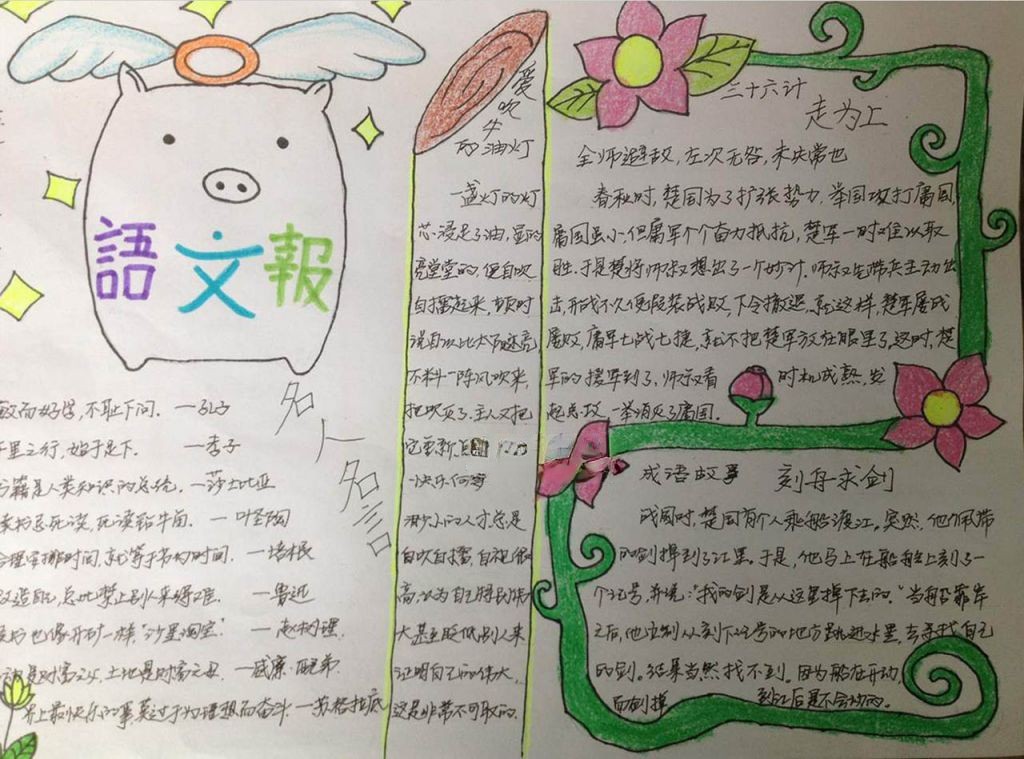 語文報
名人名言
敏而好学，不耻下问．—孔子
千里之行，始于足下．—李子
书籍是人类知识的总统．—莎士比亚
读书忌死读，死读钻牛角．—叶圣陶
合理安排时间，就等于节约时间．—培根
—鲁迅
读书也像开矿一样"沙里淘金"．—赵树理
劳动是财富之父，土地是财富之母．—威廉．配弟
世上最快乐的事莫过于为理想而奋斗．—苏格拉底
爱吹牛
的油灯
一盏灯的灯
芯浸足了油，显的
亮堂堂的，便自吹
自擂起来，顿时
说自以比太阳还亮
不料一阵风吹来，
把吹灭了．主人又把
它重新
渺小的人才总是
自吹自擂，自视很
高，认为自己特别伟
大甚至贬低别人来
证明自己的伟大，
这是非常不可取的．
三十六计
走为上
全师避敌，左次无咎，未失常也
春秋时，楚国为了扩张势力，举国攻打庸国，
庸国虽小，但庸军个个奋力抵抗，楚军一时难以取
胜．于是楚将师叔想出了一个妙计．师叔先带兵主动出
击，开战不久便假装战败，下令撤退．就这样，楚军屡战
屡败，庸军七战七捷，就不把楚军放在眼里了．这时，楚
军的援军到了，师叔看时机成熟，发
起总攻，一举消灭了庸国．
成语故事 刻舟求剑
战国时，楚国有个人乘船渡江。突然，他佩带
的剑掉到了江里。于是，他马上在船舷上刻了一
个记号，并说："我的剑是从这里掉下去的．"当船靠岸
之后，他立刻从刻下记号的地方跳进水里，去寻找自己
的剑。结果当然找不到。因为船在开动，
而剑掉到江后是不会动的。